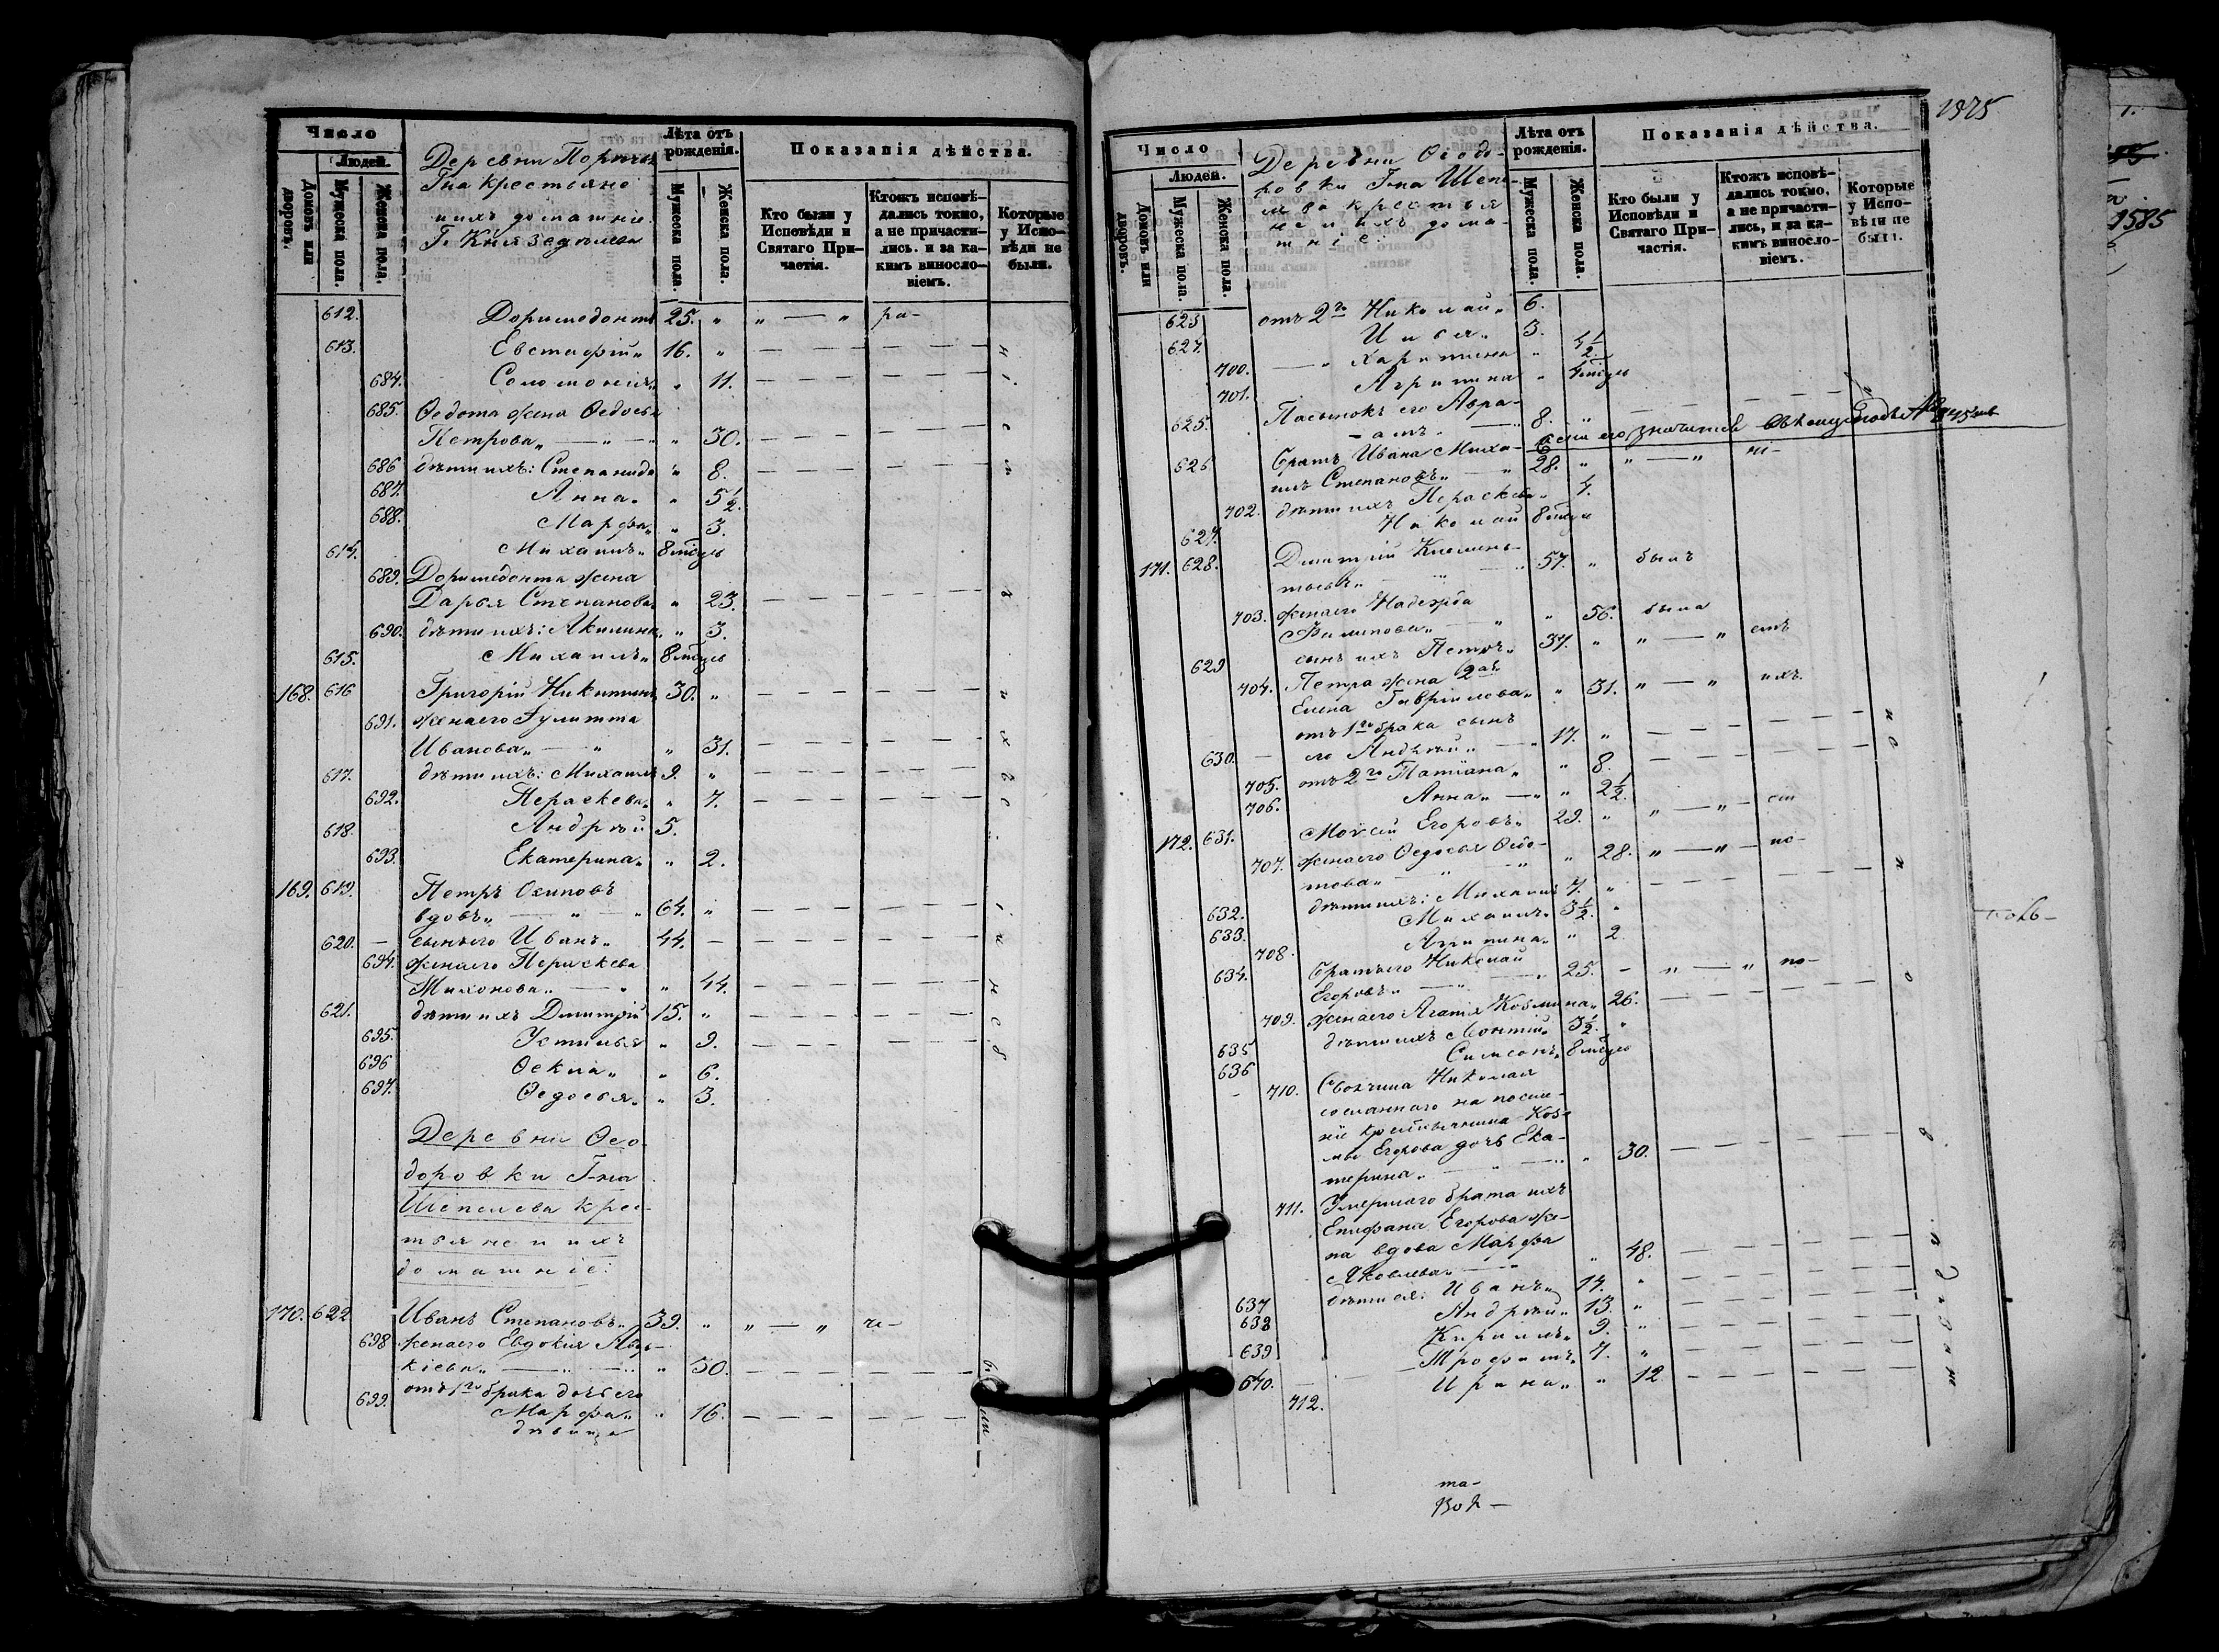 Число
Людей.
Домовъ или дворовъ.
Мужеска пола.
Женска пола.
Деревни
Гна крестьяне
и ихъ домашніе.
Лѣта отъ рожденія.
Мужеска пола.
Женска пола.
Показанія дѣйства.
Кто были у Исповѣди и Святаго Причастія.
Ктожъ исповѣдались токмо, а не причастились. и за какимъ винословіемъ.
Которые у Исповѣди не были.
612. Доримедонтъ 25. " " — " ри-
613. Евстафій " 16. "
684. Соломонія " " 11.
685. Ѳедота жена Ѳедосья
Петрова " — " — " 30.
686 дѣти ихъ: Степанида " 8.
687. Анна " " 5½.
688. Марфа " " 3.
614. Михаилъ " 8 мѣсцъ
689. Доримедонта жена
Дарья Степанова " 23.
690. дѣти ихъ: Акилина " " 3.
615. Михаилъ " 8 мѣсцъ
168. 616 Григорій Никитинъ 30. "
691. жена его Іулитта
Иванова " — " " 31.
617. дѣти ихъ: Михаилъ 9. "
692. Параскева " " 7.
618. Андрей 5.
693. Екатерина " " 2.
169. 619. Петръ Осиповъ
вдовъ " — " — " 64. "
620. — сынъ его Иванъ " 44. —
694. жена его Параскева
Тихонова " — " " 44.
621. дѣти ихъ Дмитрій 15. "
695. Устинья " 9.
696 Ѳекла " " 6.
697. Ѳедосья " " 3.
Деревни Ѳео-
доровки Г-на
Шепелева крес-
тьяне и ихъ
домашніе:
170. 622 Иванъ Степановъ " 39. " " — " чи-
698 жена его Евдокія Авдо-
кіева " — " — " 30.
699. отъ 1го брака дочь его
Марфа " " 16.
дѣвица
были
1375
Число
Людей.
Домовъ или дворовъ.
Мужеска пола.
Женска пола.
Деревни Ѳеодо-
ровки Гна Шепе-
лева крестья
не и ихъ дома-
шніе:
Лѣта отъ рожденія.
Мужеска пола.
Женска пола.
Показанія дѣйства.
Кто были у Исповѣди и Святаго Причастія.
Ктожъ исповѣдались токмо, а не причастились, и за какимъ винословіемъ.
Которые у Исповѣди не были.
623 отъ 2го Николай " 6.
624. Илья " 3.
700. — " Харитина " 4½
701. Агрипина " 4 мѣсцъ
625. Пасынокъ его Авра-
амъ " — " 8. "
626 братъ Ивана Миха-
илъ Степановъ " " 28. " " — " ни-
702. дѣти ихъ Параскева " 4.
627. Николай 8 мѣсцъ
171. 628. Дмитрій Климен-
тьевъ " — " — " 57. " былъ
703. жена его Надежда
Филипова " — " " 56. была
629 сынъ ихъ Петръ " 37. " " — " отъ
704. Петра жена 2я
Елена Гавріилова " " 31. " — " ихъ
отъ 1го брака сынъ
630. — его Андрей " — " 17. "
705. отъ 2го Татіана " " 8.
706. Анна " — " " 2½.
172. 631. Моѵсей Егоровъ " 29. " " — " от
707. жена его Ѳедосья Ѳедо-
това " — " — " " 28. " — " по-
632. дѣти ихъ: Михаилъ 7. "
633. Михаилъ " 3½. "
708. Агрипина " " 2.
634. братъ его Николай
Егоровъ " — " 25. — " — " по-
709. жена его Агафія Козмина " 26.
635 дѣти ихъ Леонтій " 3½. "
636 Симеонъ " 8 мѣсцъ
710. Своячина Николая
сосланнаго на посиле-
ніе крестьянина Коз-
мы Егорова дочь Ека-
терина " — " — " " 30.
711. Умершаго брата ихъ
Епифана Егорова же-
на вдова Марфа
Яковлева " — " " 48.
637 дѣти ея: Иванъ " 14. "
638 Андрей " 13. "
639 Кириллъ " 9. "
640. Трофимъ " 7. "
712. Ирина " " 12
та-